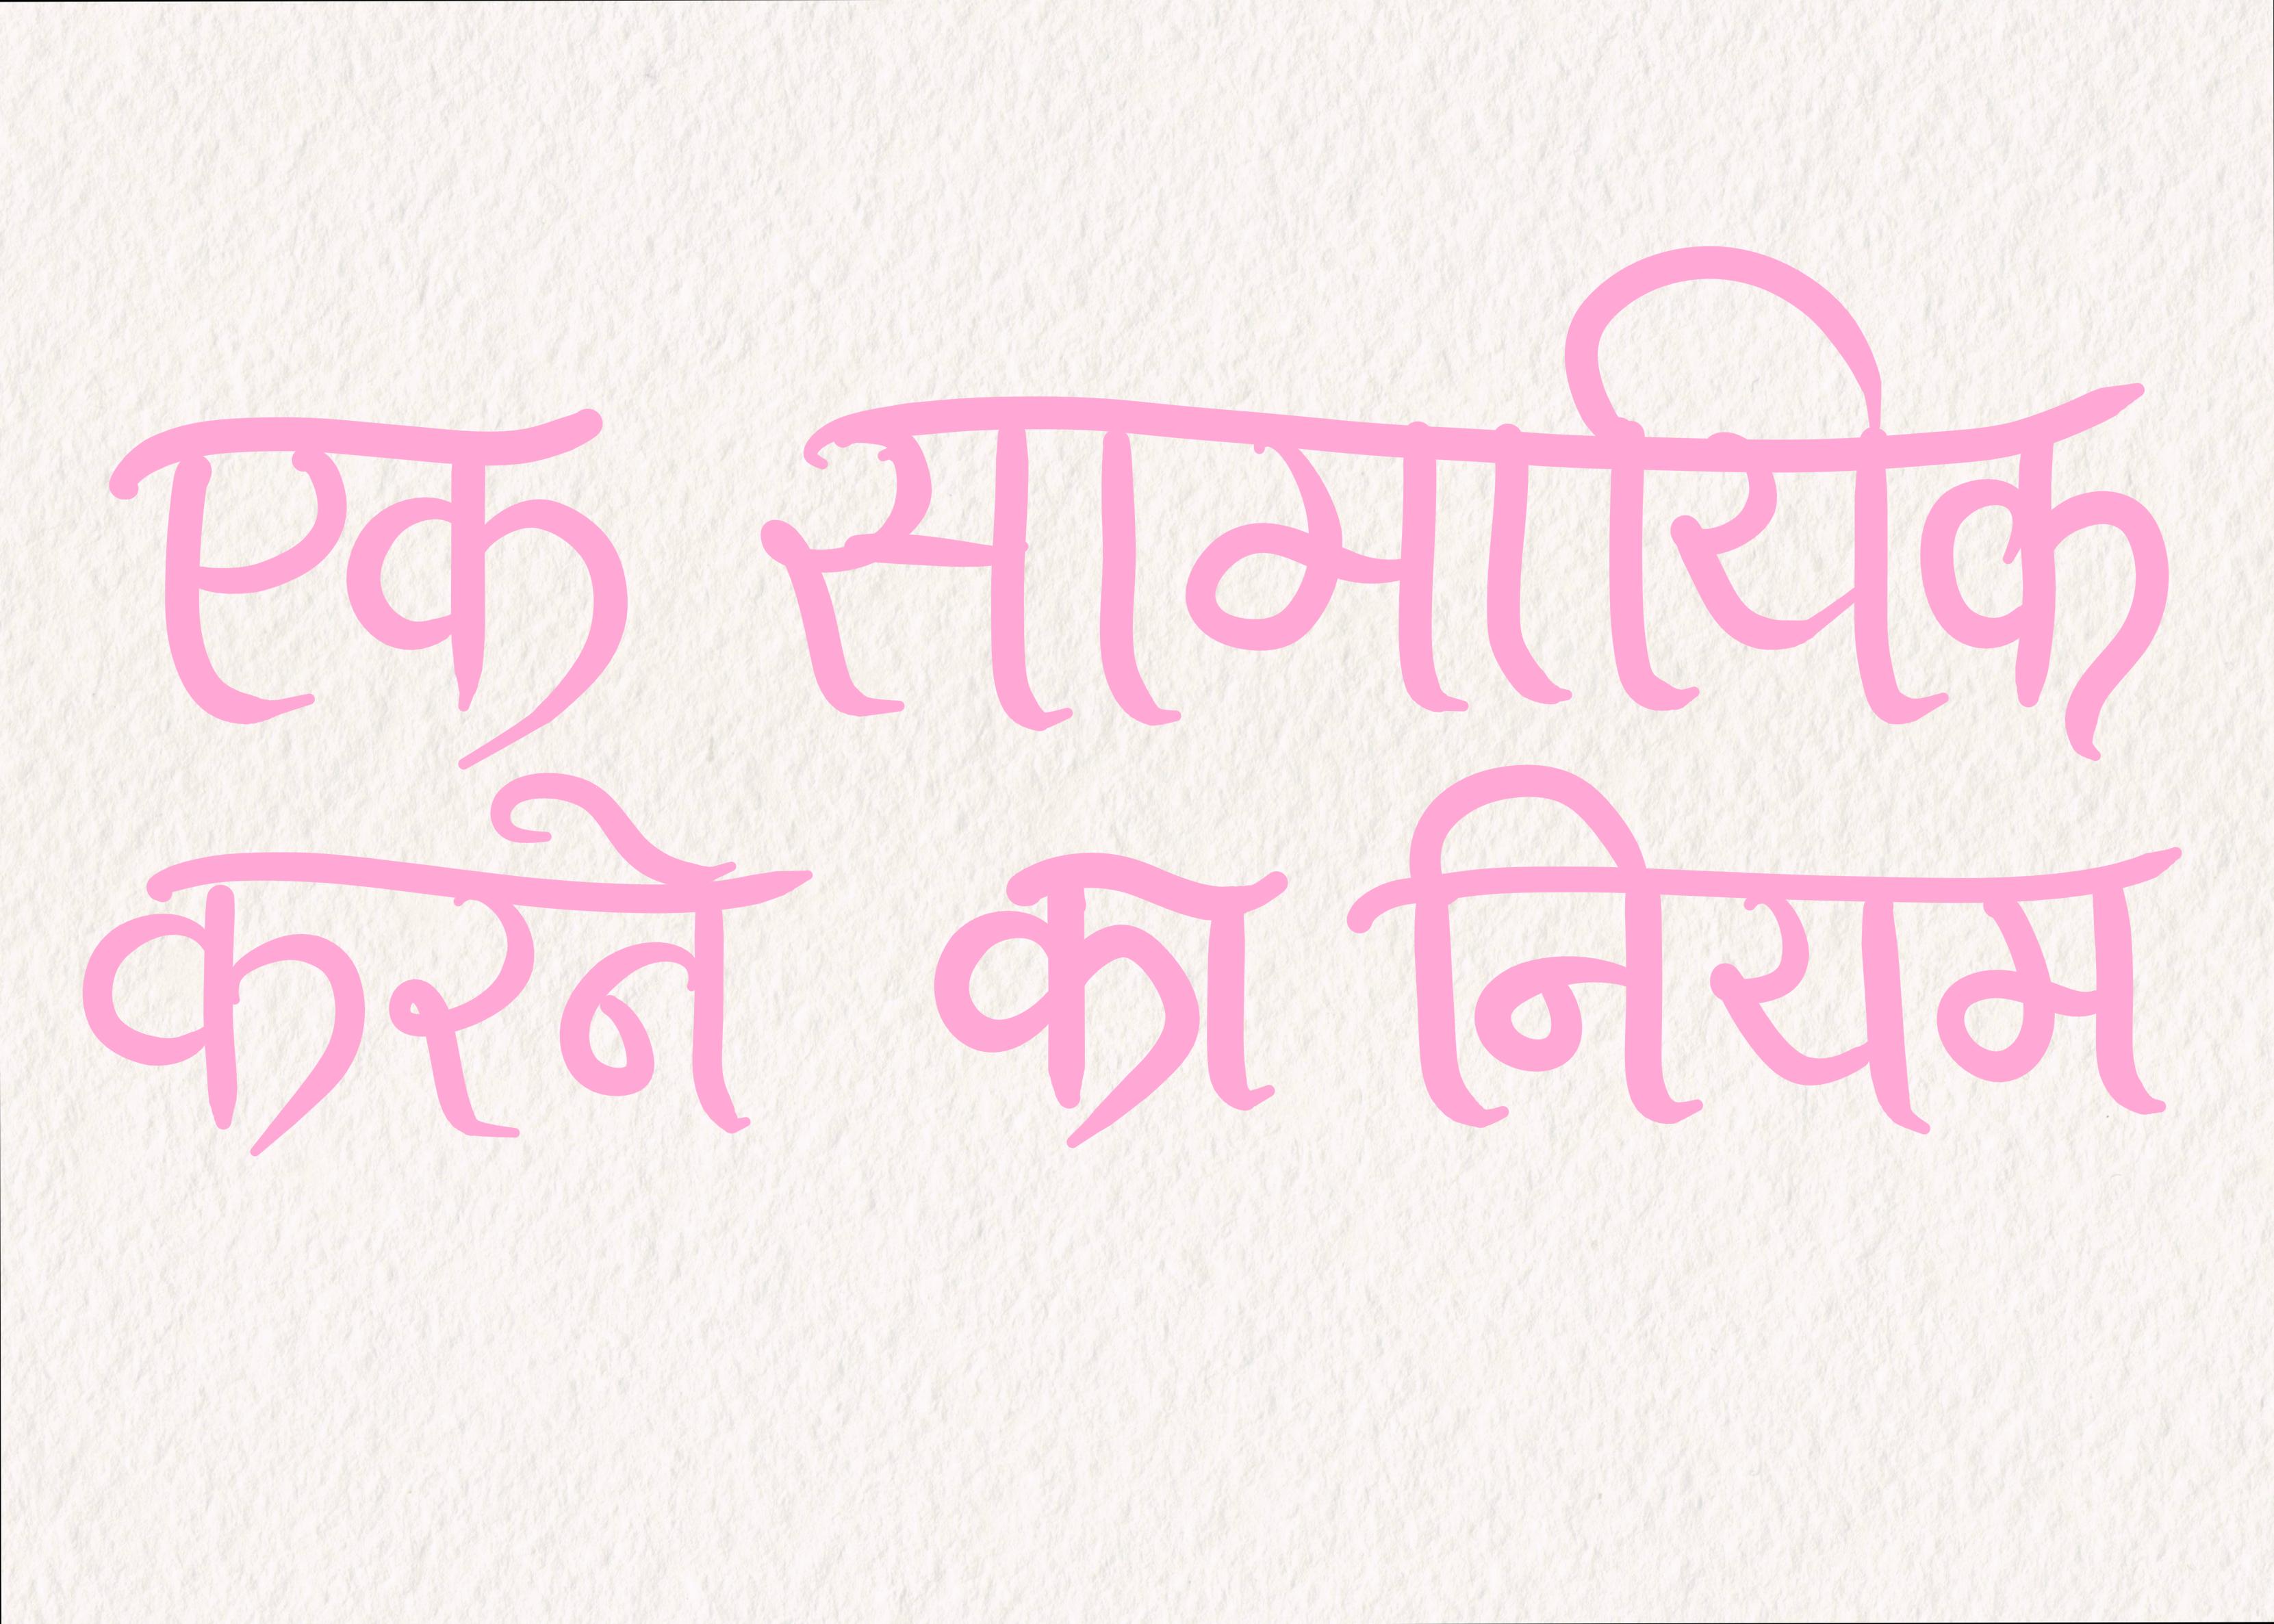 एक सामायिक
करने का नियम